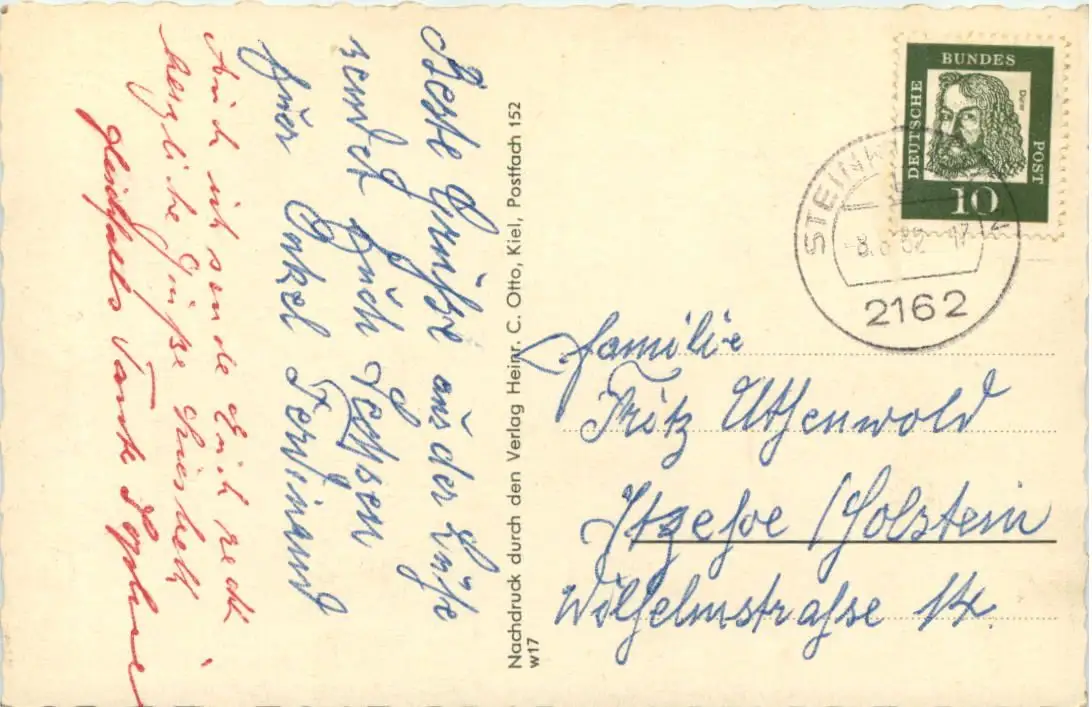 Beste Grüße aus der Nähe
sendet Euch
Euer Onkel Ferdinand
Auch ich sende Euch recht
herzliche Grüße
Tante Sophie
Nachdruck durch den Verlag Heinr. C. Otto, Kiel, Postfach 152
w17
DEUTSCHE
BUNDES
POST
Dürer
10
2162
Familie
Fritz Uthenwold
Itzehoe /Holstein
Wilhelmstraße